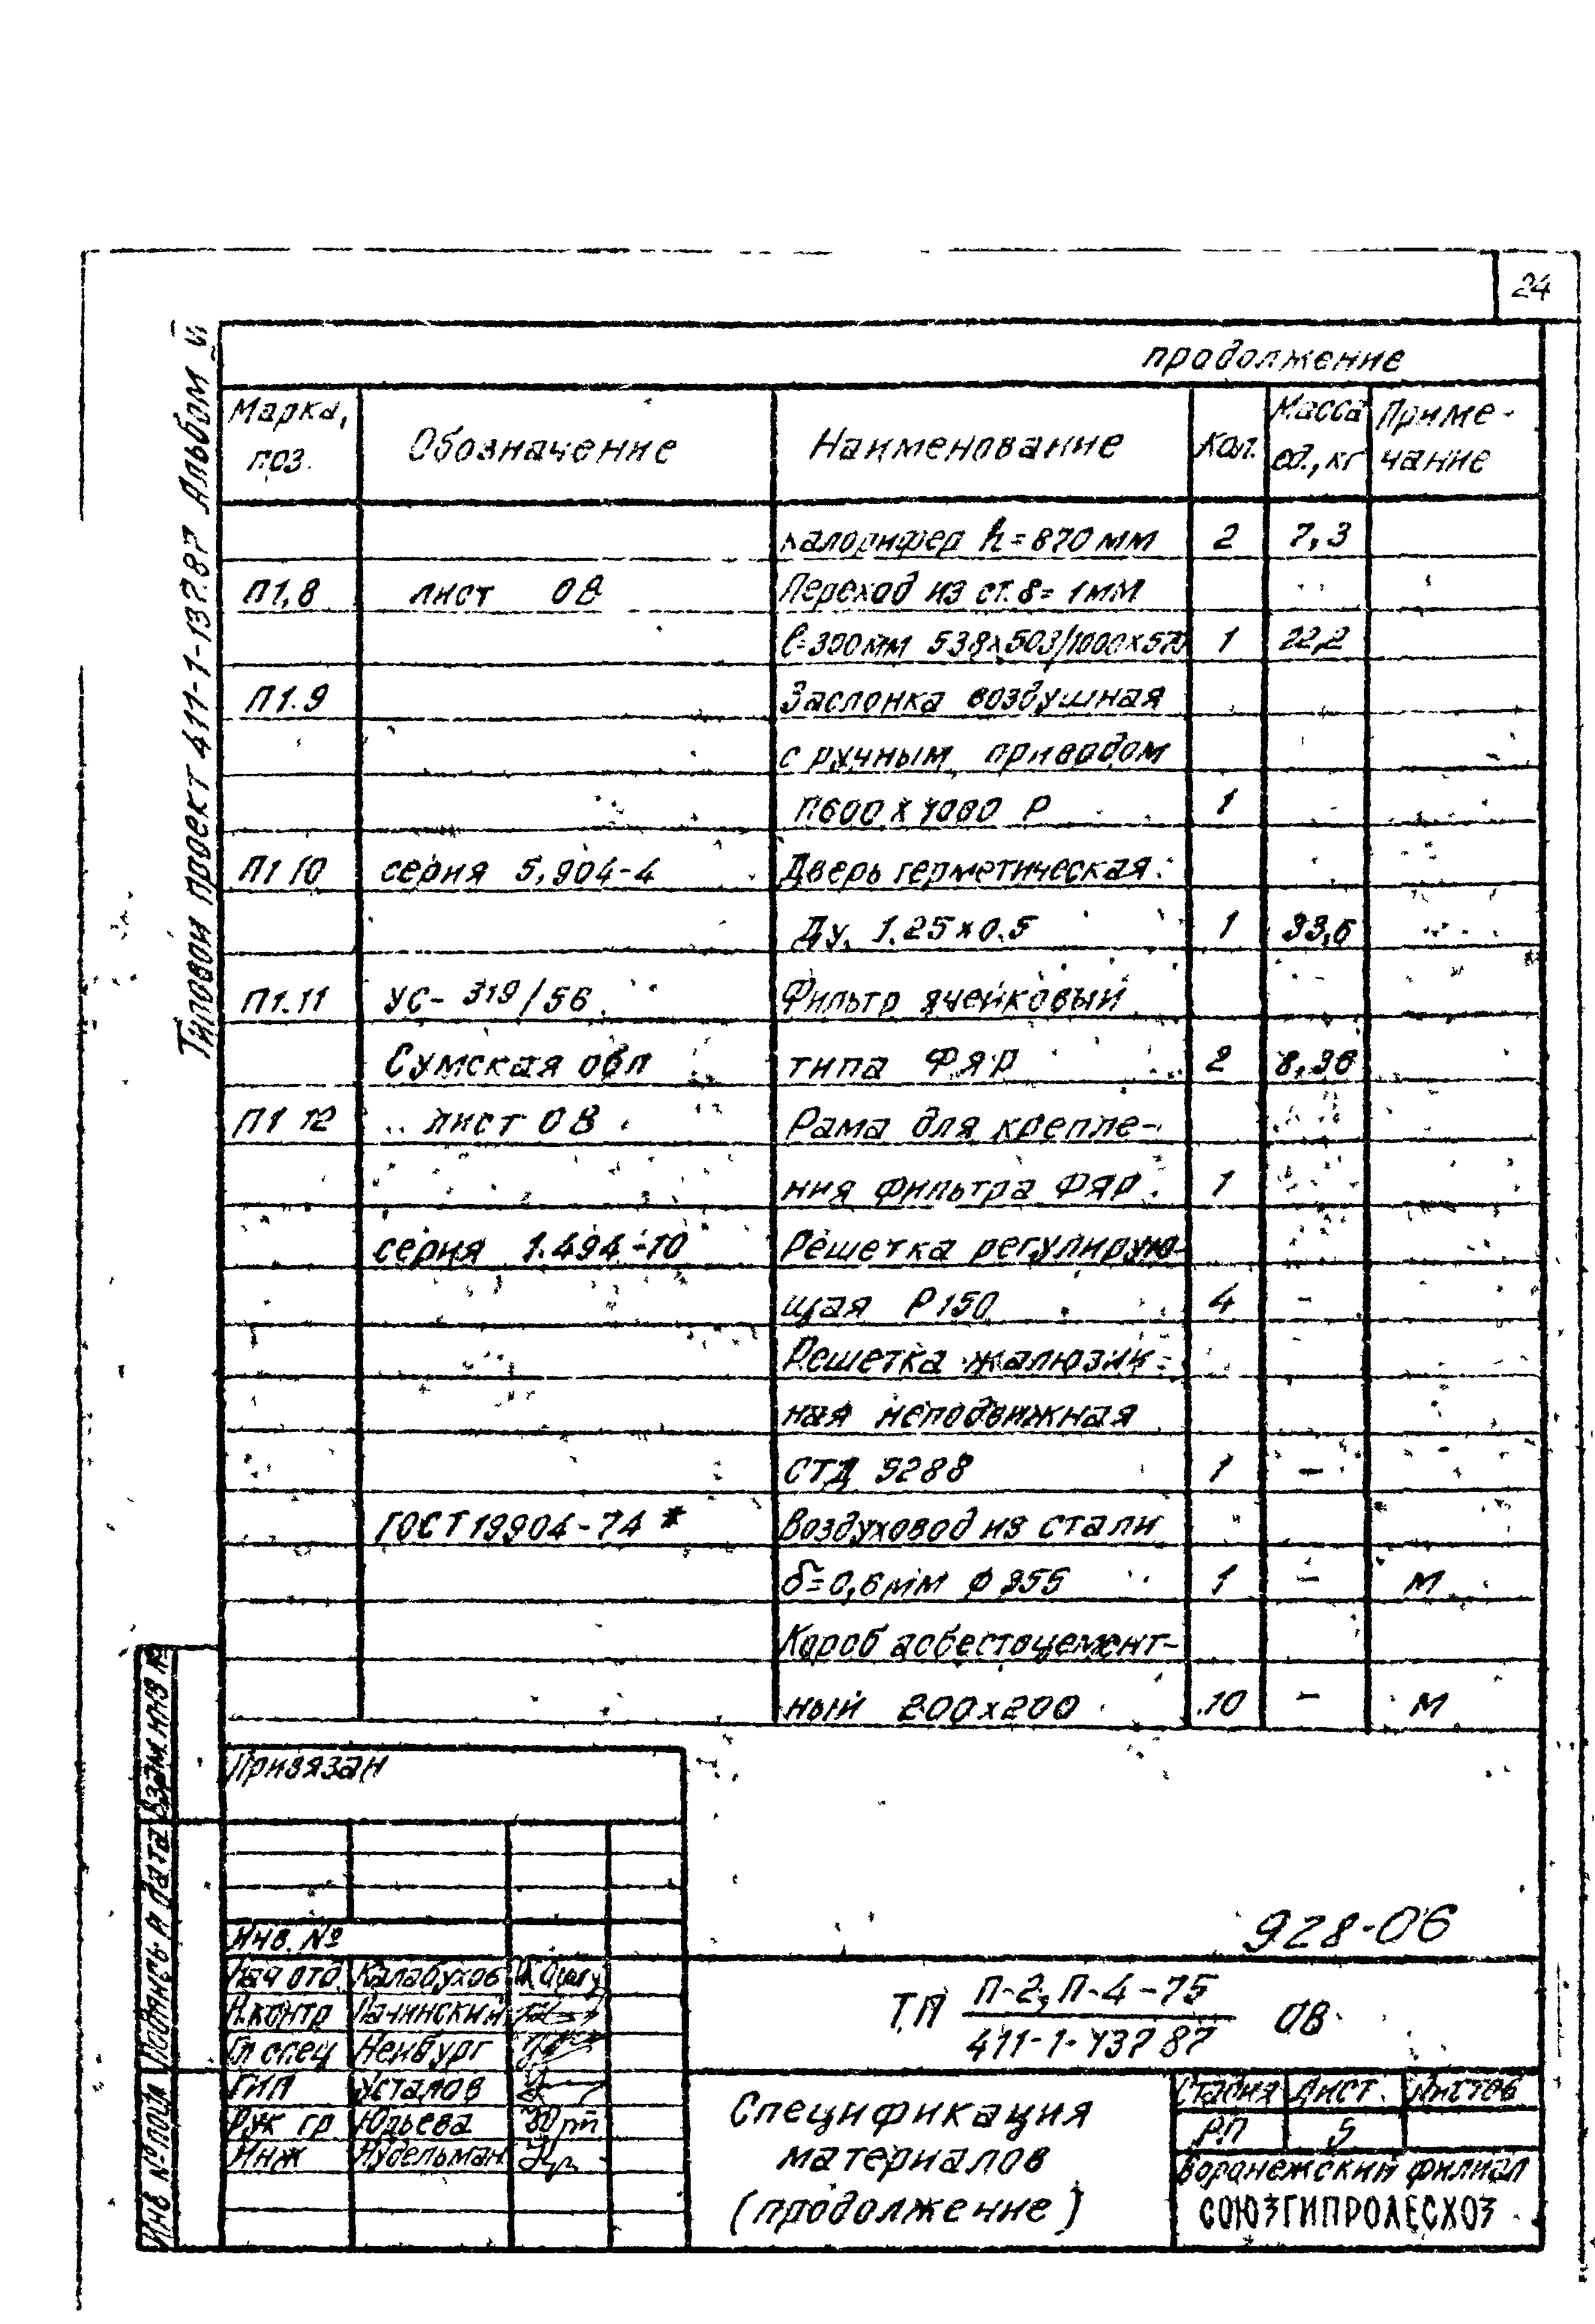 24
Типовой проект 411-1-137.87 Альбом VI
продолжение
Марка, поз.
Обозначение
Наименование
Кол.
Масса ед., кг
Приме-чание
калорифер h=870 мм 2 7,3
П1,8 лист ОВ Переход из ст. δ= 1мм
ℓ=300мм 538х503/1000х570 1 22,2
П1.9 Заслонка воздушная
с ручным приводом
П600 х 1000 Р 1
П1 10 серия 5,904-4 Дверь герметическая
Ду. 1.25х0.5 1 33,6
П1.11 УС- 319/56 Фильтр ячейковый
Сумская обл типа ФЯР 2 8,36
П1 12 лист ОВ Рама для крепле-
ния фильтра ФЯР 1
серия 1.494-10 Решетка регулирую-
щая Р150 4 -
Решетка жалюзий-
ная неподвижная
СТД 5288 1 -
ГОСТ 19904-74 * Воздуховод из стали
δ=0,6мм ф 355 1 - м
Короб асбестоцемент-
ный 200х200 10 - м
Привязан
Инв. №
Нач отд. Калабухов
Н.контр Пачинский
Гл спец Ненбург
ГИП Усталов
Рук гр Юрьева
Инж Нудельман
928-06
ТП П-2, П-4-75
411-1-137 87
ОВ
Спецификация
материалов
(продолжение)
Стадия Лист Листов
РП 5
Воронежский филиал
СОЮЗГИПРОЛЕСХОЗ
Взам. инв №
Подпись и дата
Инв. № подл